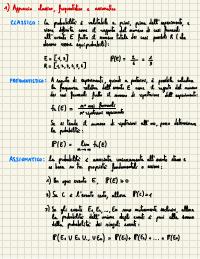 1) Approccio classico, frequentistico e assiomatico
CLASSICO: La probabilità è valutabile a priori, prima dell'esperimento, e
viene definita come il rapporto del numero di casi favorevoli
all'evento E fratto il numero totale dei casi possibili
essere equiprobabili):
E = {
R = {1, 2, 3, 4, 5, 6}
P(E) =
FREQUENTISTICO: A seguito di esperimenti, quindi a posteriori, è possibile calcolare
la frequenza relativa dell'evento E come il rapporto del numero
dei casi favorevoli fratto il numero di ripetizioni dell'esperimento:
fn(E) = n° casi favorevoli
n° ripetizioni esperimento
Se si tende il numero di ripetizioni all'∞, posso determinare
la probabilità:
P(E) = lim fn(E)
ASSIOMATICO: La probabilità è associata univocamente all'evento stesso e
proprietà fondamentali e assiomi:
1) Per ogni evento E, P(E) ≥ 0
2) Se C è l'evento certo, allora P(C) = 1
3) Se gli eventi E1, E2, ..., En sono mutuamente esclusivi, allora
la probabilità dell'unione degli eventi è pari alla somma
della probabilità dei singoli eventi:
P(E1 ∪ E2 ∪ ... ∪ En) = P(E1) + P(E2) + ... + P(En)